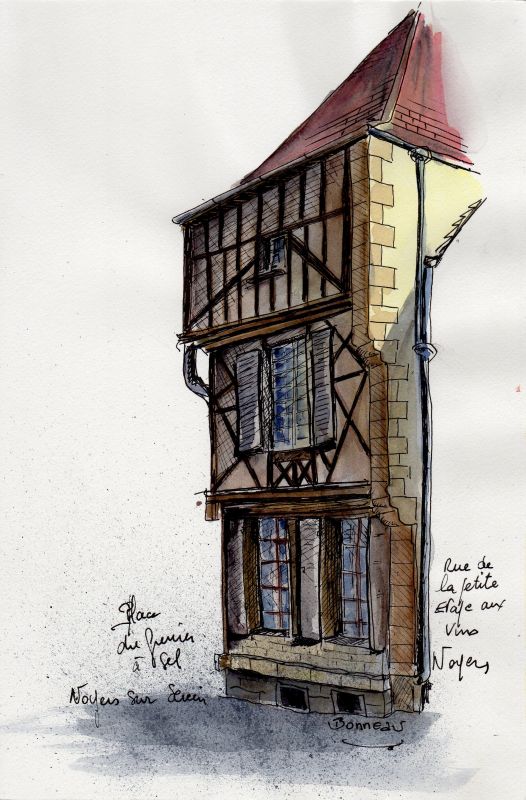 Place
du Grenier
à
Sel
Noyers sur Serein
Rue de
la petite
Etape aux
Vins
Noyers
Bonneau